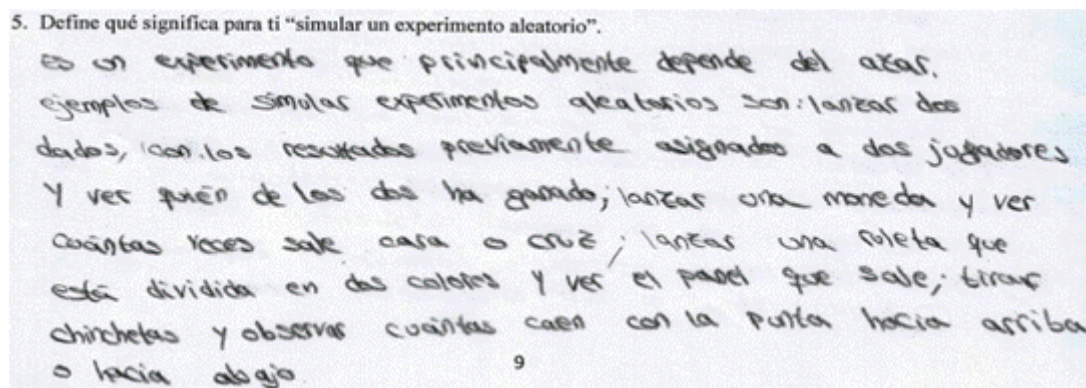 5. Define qué significa para ti “simular un experimento aleatorio”.
es un experimento que principalmente depende del azar.
ejemplos de simular experimentos aleatorios son: lanzar dos
dados, con los resultados previamente asignados a dos jugadores
y ver quién de los dos ha ganado; lanzar una moneda y ver
cuántas veces sale cara o cruz; lanzar una ruleta que
está dividida en dos colores y ver el panel que sale; tirar
chinchetas y observar cuántas caen con la punta hacia arriba
o hacia abajo
9